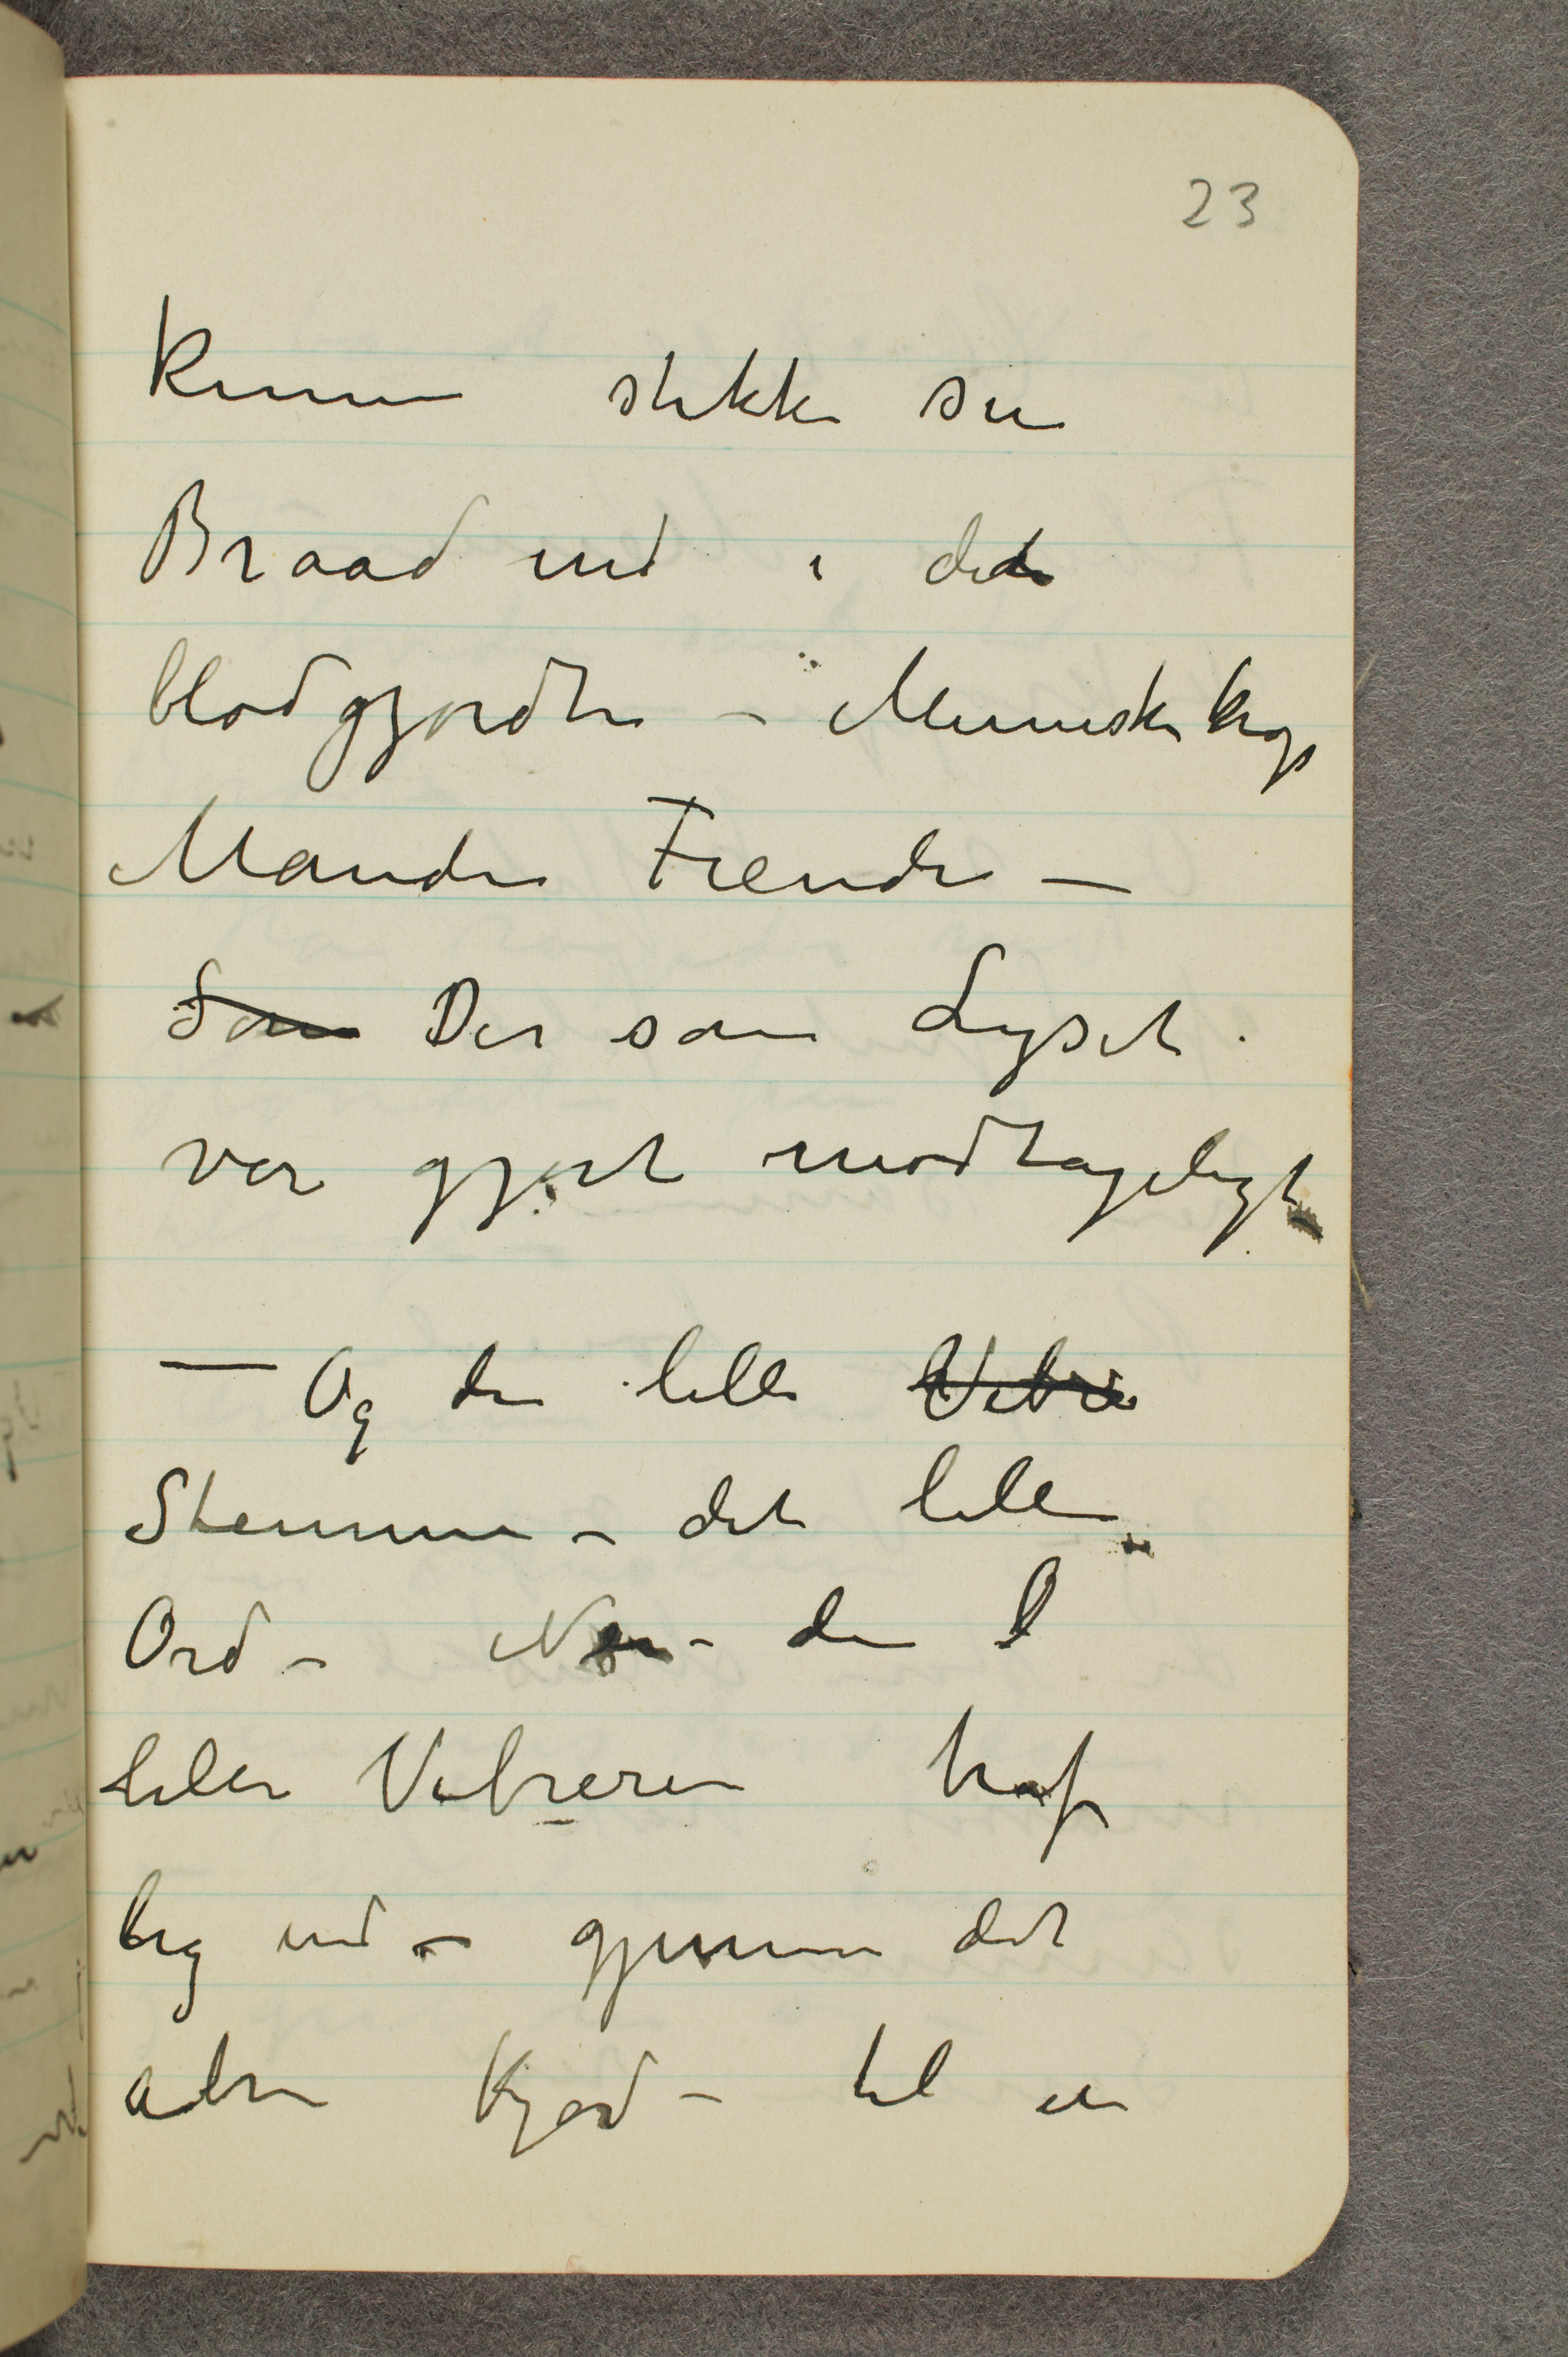 23
kunne stikke sin
Braad ind i det
blodgjordte – Menneskekrop
Manden Fienden –
Som Der som Lyset
var gjort modtageligt
— Og den lille Vibre
Stemme – det lille
Ord – – den l
lille Vibreren traf
og ind – gjennem det
aabne Kjød – til en